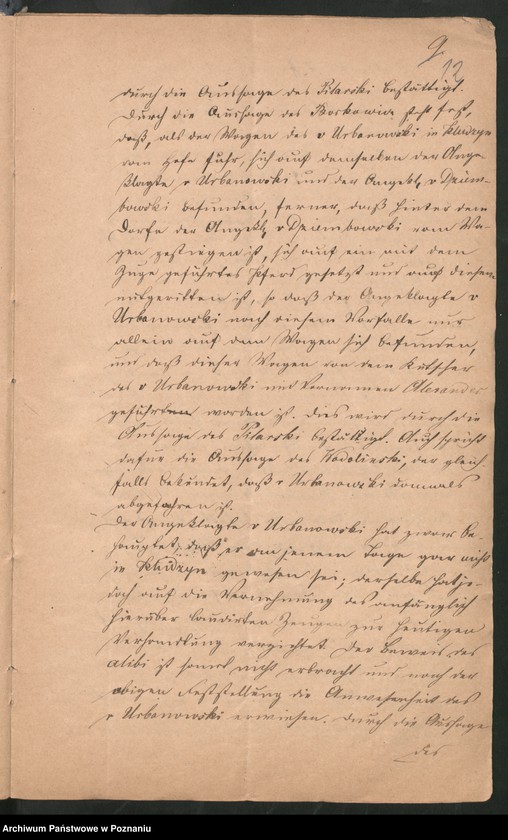 9.
12
durch die Aussage des Pilarski bestättigt.
Durch die Aussage des Boskowia steht fest,
daß, als der Wagen des v Urbanowski in Kludzyn
vom Hofe fuhr, sich auf demselben der Ange-
klagte v Urbanowski und der Angekl. v Dziem-
bowski befunden, ferner, daß hinter dem
Dorfe der Angekl. v Dziembowski vom Wa-
gen gestiegen ist, sich auf ein mit dem
Zuge geführtes Pferd gesetzt und auf diesem
mitgeritten ist, so daß der Angeklagte v
Urbanowski nach diesem Vorfalle nur
allein auf dem Wagen sich befunden,
und daß dieser Wagen von dem Kutscher
des v Urbanowski mit Vornamen Alexander
geführt worden ist. Dies wird durch die
Aussage des Pilarski bestättigt. Auch spricht
dafür die Aussage des Wodolinski, der gleich-
falls bekundet, daß v Urbanowski damals
abgefahren ist.
Der Angeklagte v Urbanowski hat zwar be-
hauptet, daß er an jenem Tage gar nicht
in Kludzyn gewesen sei; derselbe hat je-
doch auf die Vernehmung des anfänglich
hierüber laudirten Zeugen zur heutigen
Verhandlung verzichtet. Der Beweis des
alibi ist somit nicht erbracht und nach der
obigen Feststellung die Anwesenheit des
v Urbanowski erwiesen. Durch die Aussage
des
Archiwum Państwowe w Poznaniu